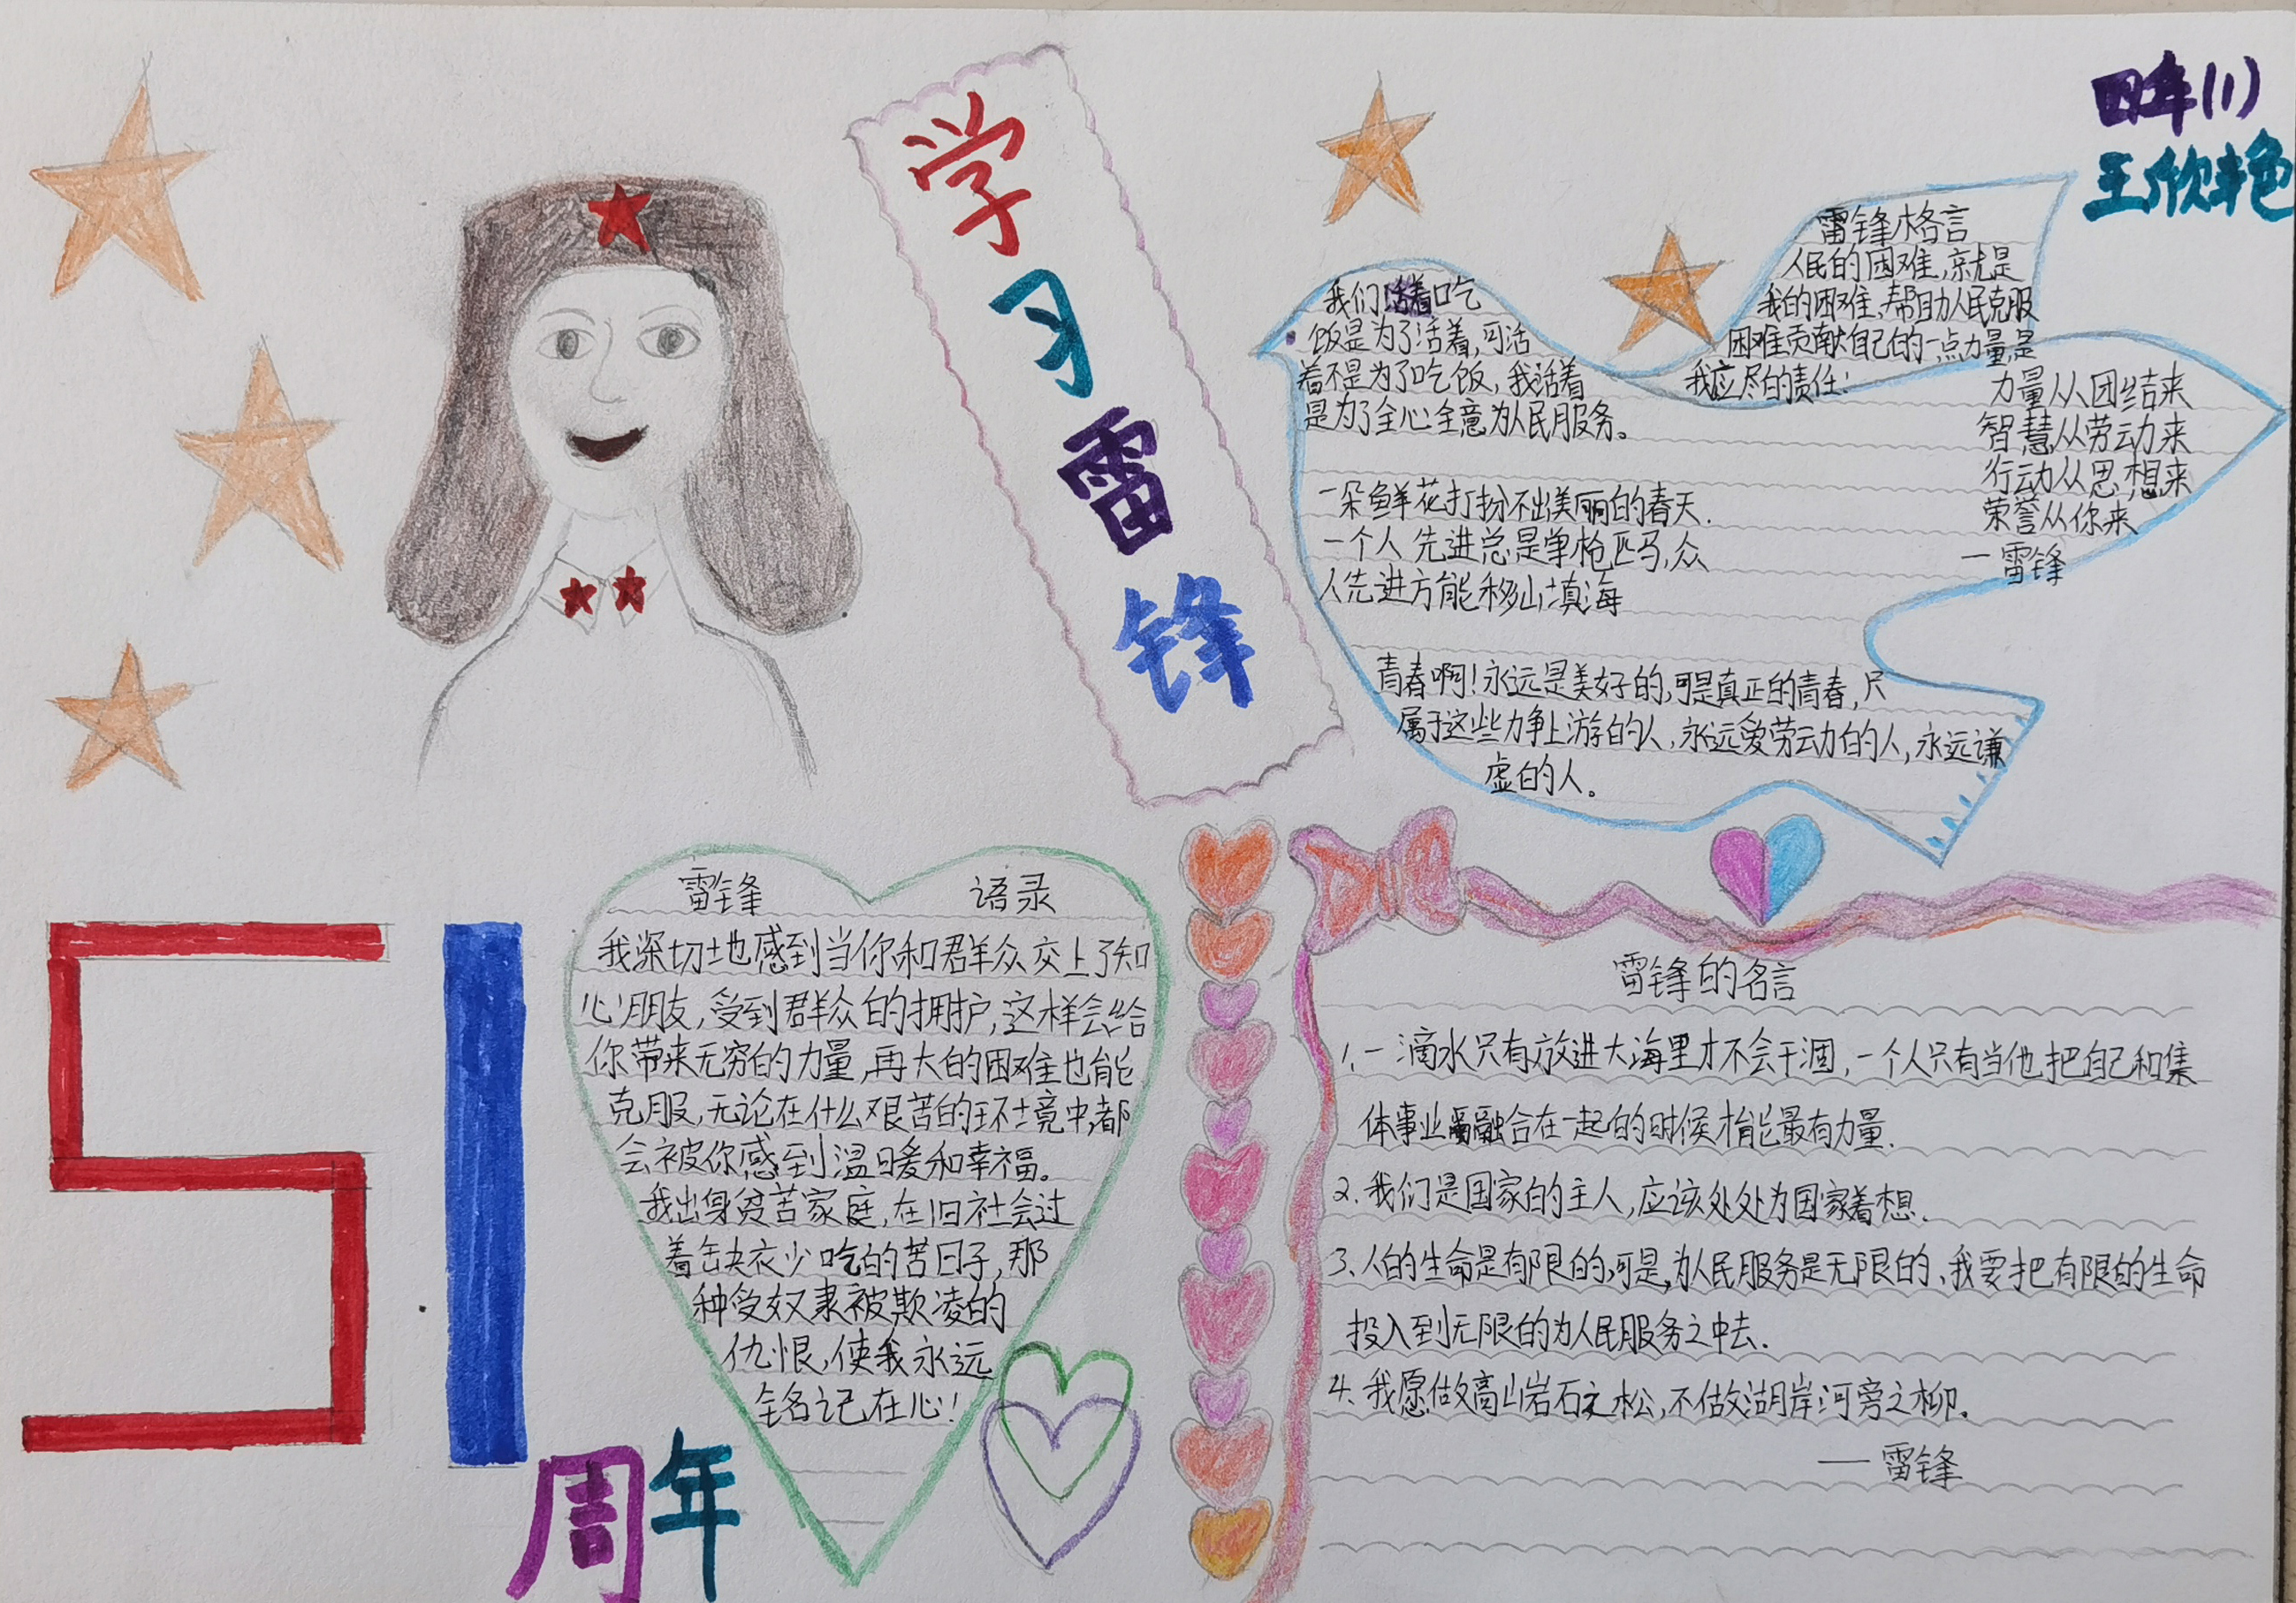 学
习
雷
锋
四年(1)
王欣艳
雷锋格言
人民的困难,就是
我的困难,帮助人民克服
困难贡献自己的一点力量,是
我应尽的责任!
我们活着吃
饭是为了活着,可活
着不是为了吃饭,我活着
是为了全心全意为人民服务。
力量从团结来
智慧从劳动来
行动从思想来
荣誉从你来
—雷锋
一朵鲜花打扮不出美丽的春天.
一个人先进总是单枪匹马,众
人先进方能移山填海
青春啊!永远是美好的,可是真正的青春,只
属于这些力争上游的人,永远爱劳动的人,永远谦
虚的人。
51
周年
雷锋 语录
我深切地感到当你和群众交上了知
心朋友,受到群众的拥护,这样会给
你带来无穷的力量,再大的困难也能
克服,无论在什么艰苦的环境中,都
会被你感到温暖和幸福。
我出身贫苦家庭,在旧社会过
着缺衣少吃的苦日子,那
种受奴隶被欺凌的
仇恨,使我永远
铭记在心!
雷锋的名言
1、一滴水只有放进大海里才不会干涸,一个人只有当他把自己和集
体事业融合在一起的时候才能最有力量.
2.我们是国家的主人,应该处处为国家着想.
3、人的生命是有限的,可是,为人民服务是无限的、我要把有限的生命
投入到无限的为人民服务之中去.
4.我愿做高山岩石之松,不做湖岸河旁之柳。
—雷锋